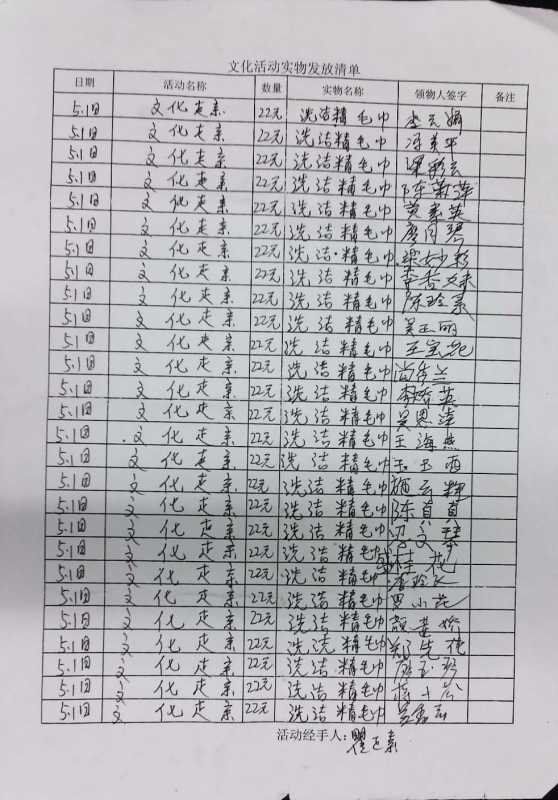 文化活动实物发放清单
日期 活动名称 数量 实物名称 领物人签字 备注
5.1日 文化走亲 22元 洗洁精毛巾
5.1日 文化走亲 22元 洗洁精毛巾
5.1日 文化走亲 22元 洗洁精毛巾
5.1日 文化走亲 22元 洗洁精毛巾 陈新萍
5.1日 文化走亲 22元 洗洁精毛巾 莫素英
5.1日 文化走亲 22元 洗洁精毛巾 廖月碧
5.1日 文化走亲 22元 洗洁精毛巾 梁妙彩
5.1日 文化走亲 22元 洗洁精毛巾 李香妹
5.1日 文化走亲 22元 洗洁精毛巾
5.1日 文化走亲 22元 洗洁精毛巾 吴玉丽
5.1日 文化走亲 22元 洗洁精毛巾 王宝花
5.1日 文化走亲 22元 洗洁精毛巾
5.1日 文化走亲 22元 洗洁精毛巾
5.1日 文化走亲 22元 洗洁精毛巾
5.1日 文化走亲 22元 洗洁精毛巾 王海燕
5.1日 文化走亲 22元 洗洁精毛巾 王玉雨
5.1日 文化走亲 22元 洗洁精毛巾 施云辉
5.1日 文化走亲 22元 洗洁精毛巾 陈首茵
5.1日 文化走亲 22元 洗洁精毛巾
5.1日 文化走亲 22元 洗洁精毛巾 盛桂花
5.1日 文化走亲 22元 洗洁精毛巾
5.1日 文化走亲 22元 洗洁精毛巾 罗小花
5.1日 文化走亲 22元 洗洁精毛巾
5.1日 文化走亲 22元 洗洗精毛巾 郑先花
5.1日 文化走亲 22元 洗洁精毛巾
5.1日 文化走亲 22元 洗洁精毛巾
5.1日 文化走亲 22元 洗洁精毛巾
活动经手人:瞿正素